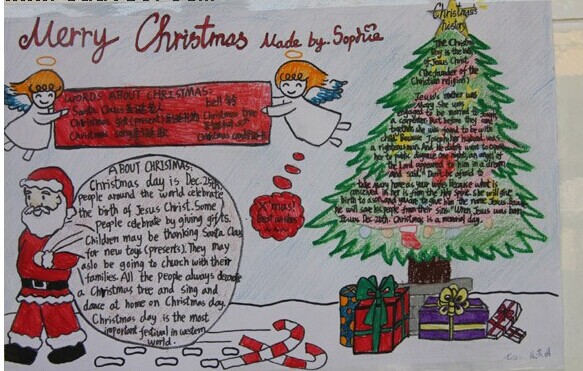 Merry Christmas Made by Sophie
WORDS ABOUT CHRISTMAS:
Santa Claus 圣诞老人
bell 铃
Christmas gift (present)
Christmas tree
Christmas song 圣诞歌
Christmas card
ABOUT CHRISTMAS:
Christmas day is Dec. 25th,
people around the world celebrate
the birth of Jesus Christ. Some
people celebrate by giving gifts.
Children may be thanking Santa Claus
for new toys (presents). They may
aslo be going to church with their
families. All the people always decorate
a Christmas tree and sing and
dance at home on Christmas day.
Christmas day is the most
important festival in western
world.
X'mas!
Best wishes
Christmas's
history
The Christmas
Day is the birth
of Jesus Christ
(the founder of the
Christian religion)
Jesus's mother was
Mary. She was
going to be married to
a carpenter. But before they
she was going to be with
child. Because
a righteous man. And he didn't want to
her to public disgrace. One night, an angel of
Lord appeared to him in a dream
and said, "Don't be afraid to
take Mary home as your wife. Because what is
conceived in her is from the Holy Spirit. She will give
birth to a son, and you are to give him the name Jesus, because
he will save his people from their sins." When Jesus was born
was Dec. 25th. Christmas is a memorial day.